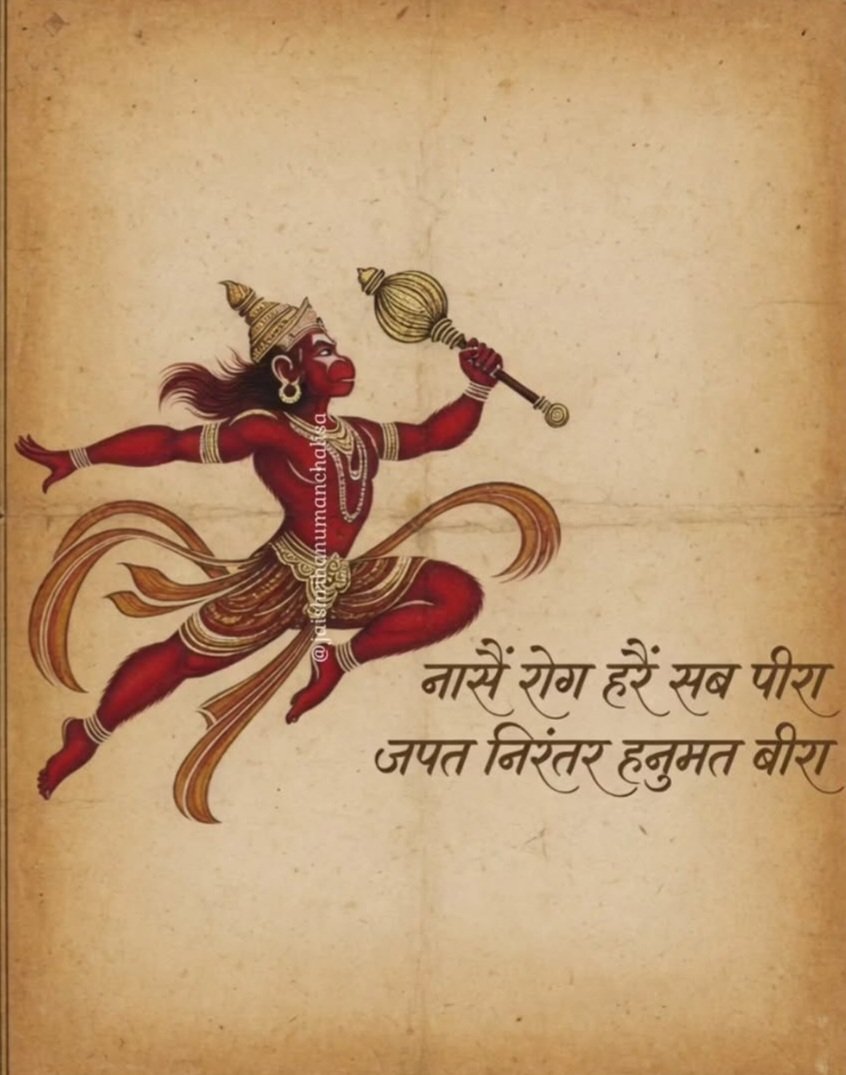 नासैं रोग हरैं सब पीरा
जपत निरंतर हनुमत बीरा
@jaishrihanumanchalisa